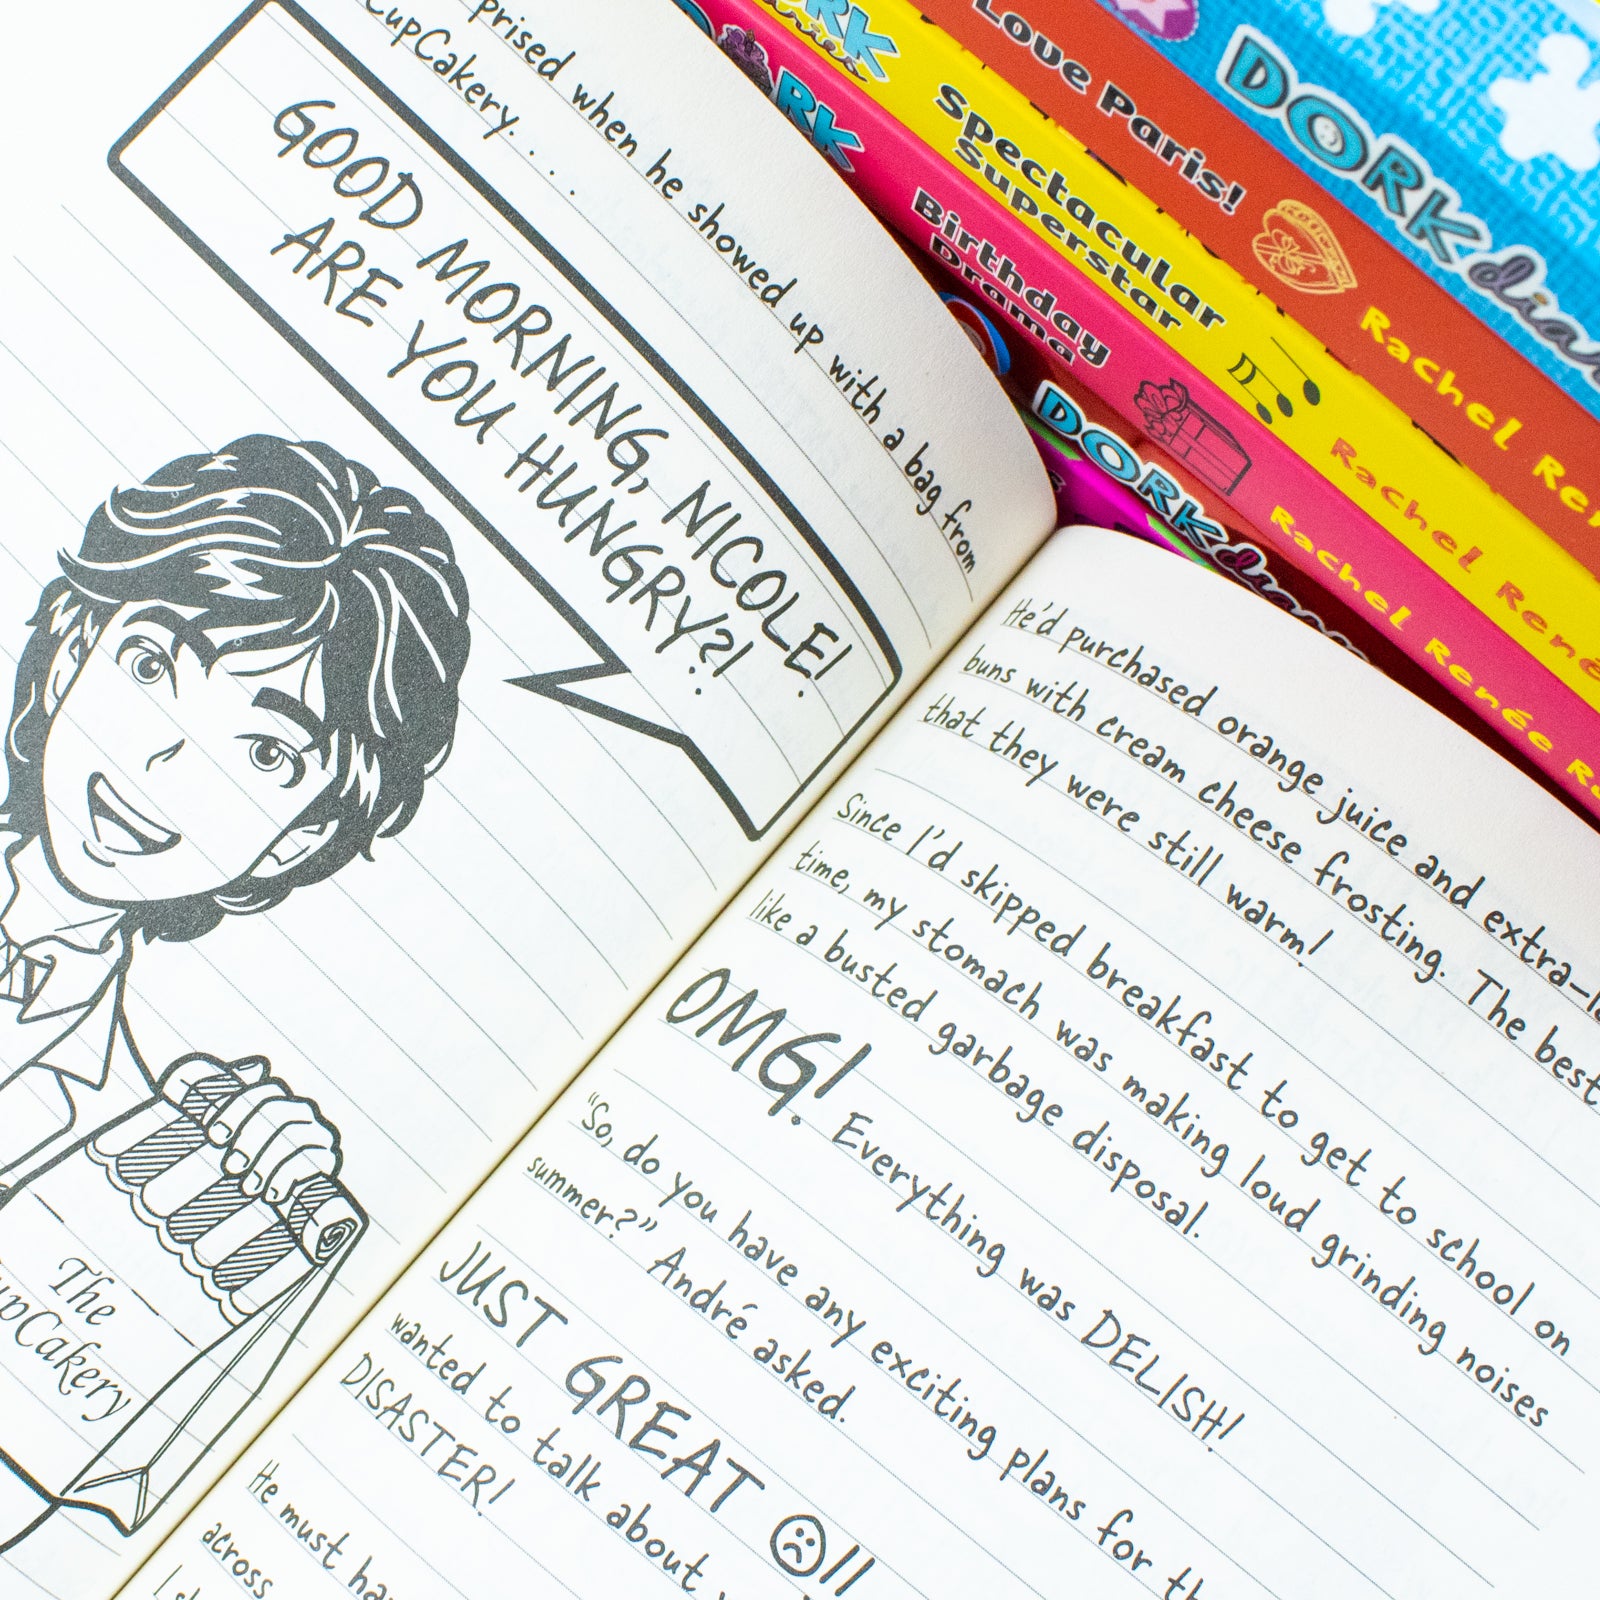 prised when he showed up with a bag from
CupCakery. . . .
GOOD MORNING, NICOLE!
ARE YOU HUNGRY?!
The
CupCakery
He'd purchased orange juice and
buns with cream cheese frosting. The best
that they were still warm!
Since I'd skipped breakfast to get to school on
time, my stomach was making loud grinding noises
like a busted garbage disposal.
OMG! Everything was DELISH!
"So, do you have any exciting plans for
summer?" André asked.
JUST GREAT ☹!!
wanted to talk about
DISASTER!
He must
across
DORK diaries
Love Paris!
Rachel
DORK diaries
Spectacular
Superstar
Rachel Renée
DORK
Birthday
Drama
Rachel Renée
DORK diaries